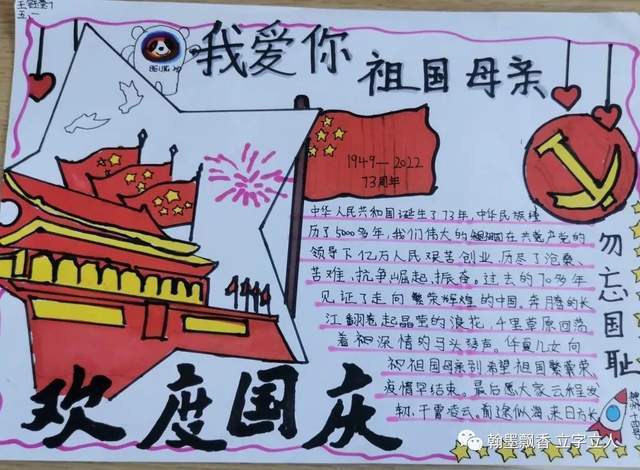 五一
BEIJING
我爱你
祖国母亲
1949—2022
73周年
中华人民共和国诞生了73年，中华民族经
历了5000多年，我们伟大的祖国在共产党的
领导下亿万人民艰苦创业，历尽了沧桑、
苦难，抗争崛起，振奋。过去的70多年
见证了走向繁荣辉煌的中国。奔腾的长
江翻卷起晶莹的浪花，千里草原回荡
着深情的马头琴声。华夏儿女向
祖国母亲 希望祖国繁荣
疫情早结束。最后愿大家云程发
轫，干霄凌云，前途似海，来日方长
勿忘国耻
欢度国庆
翰墨飘香 立字立人